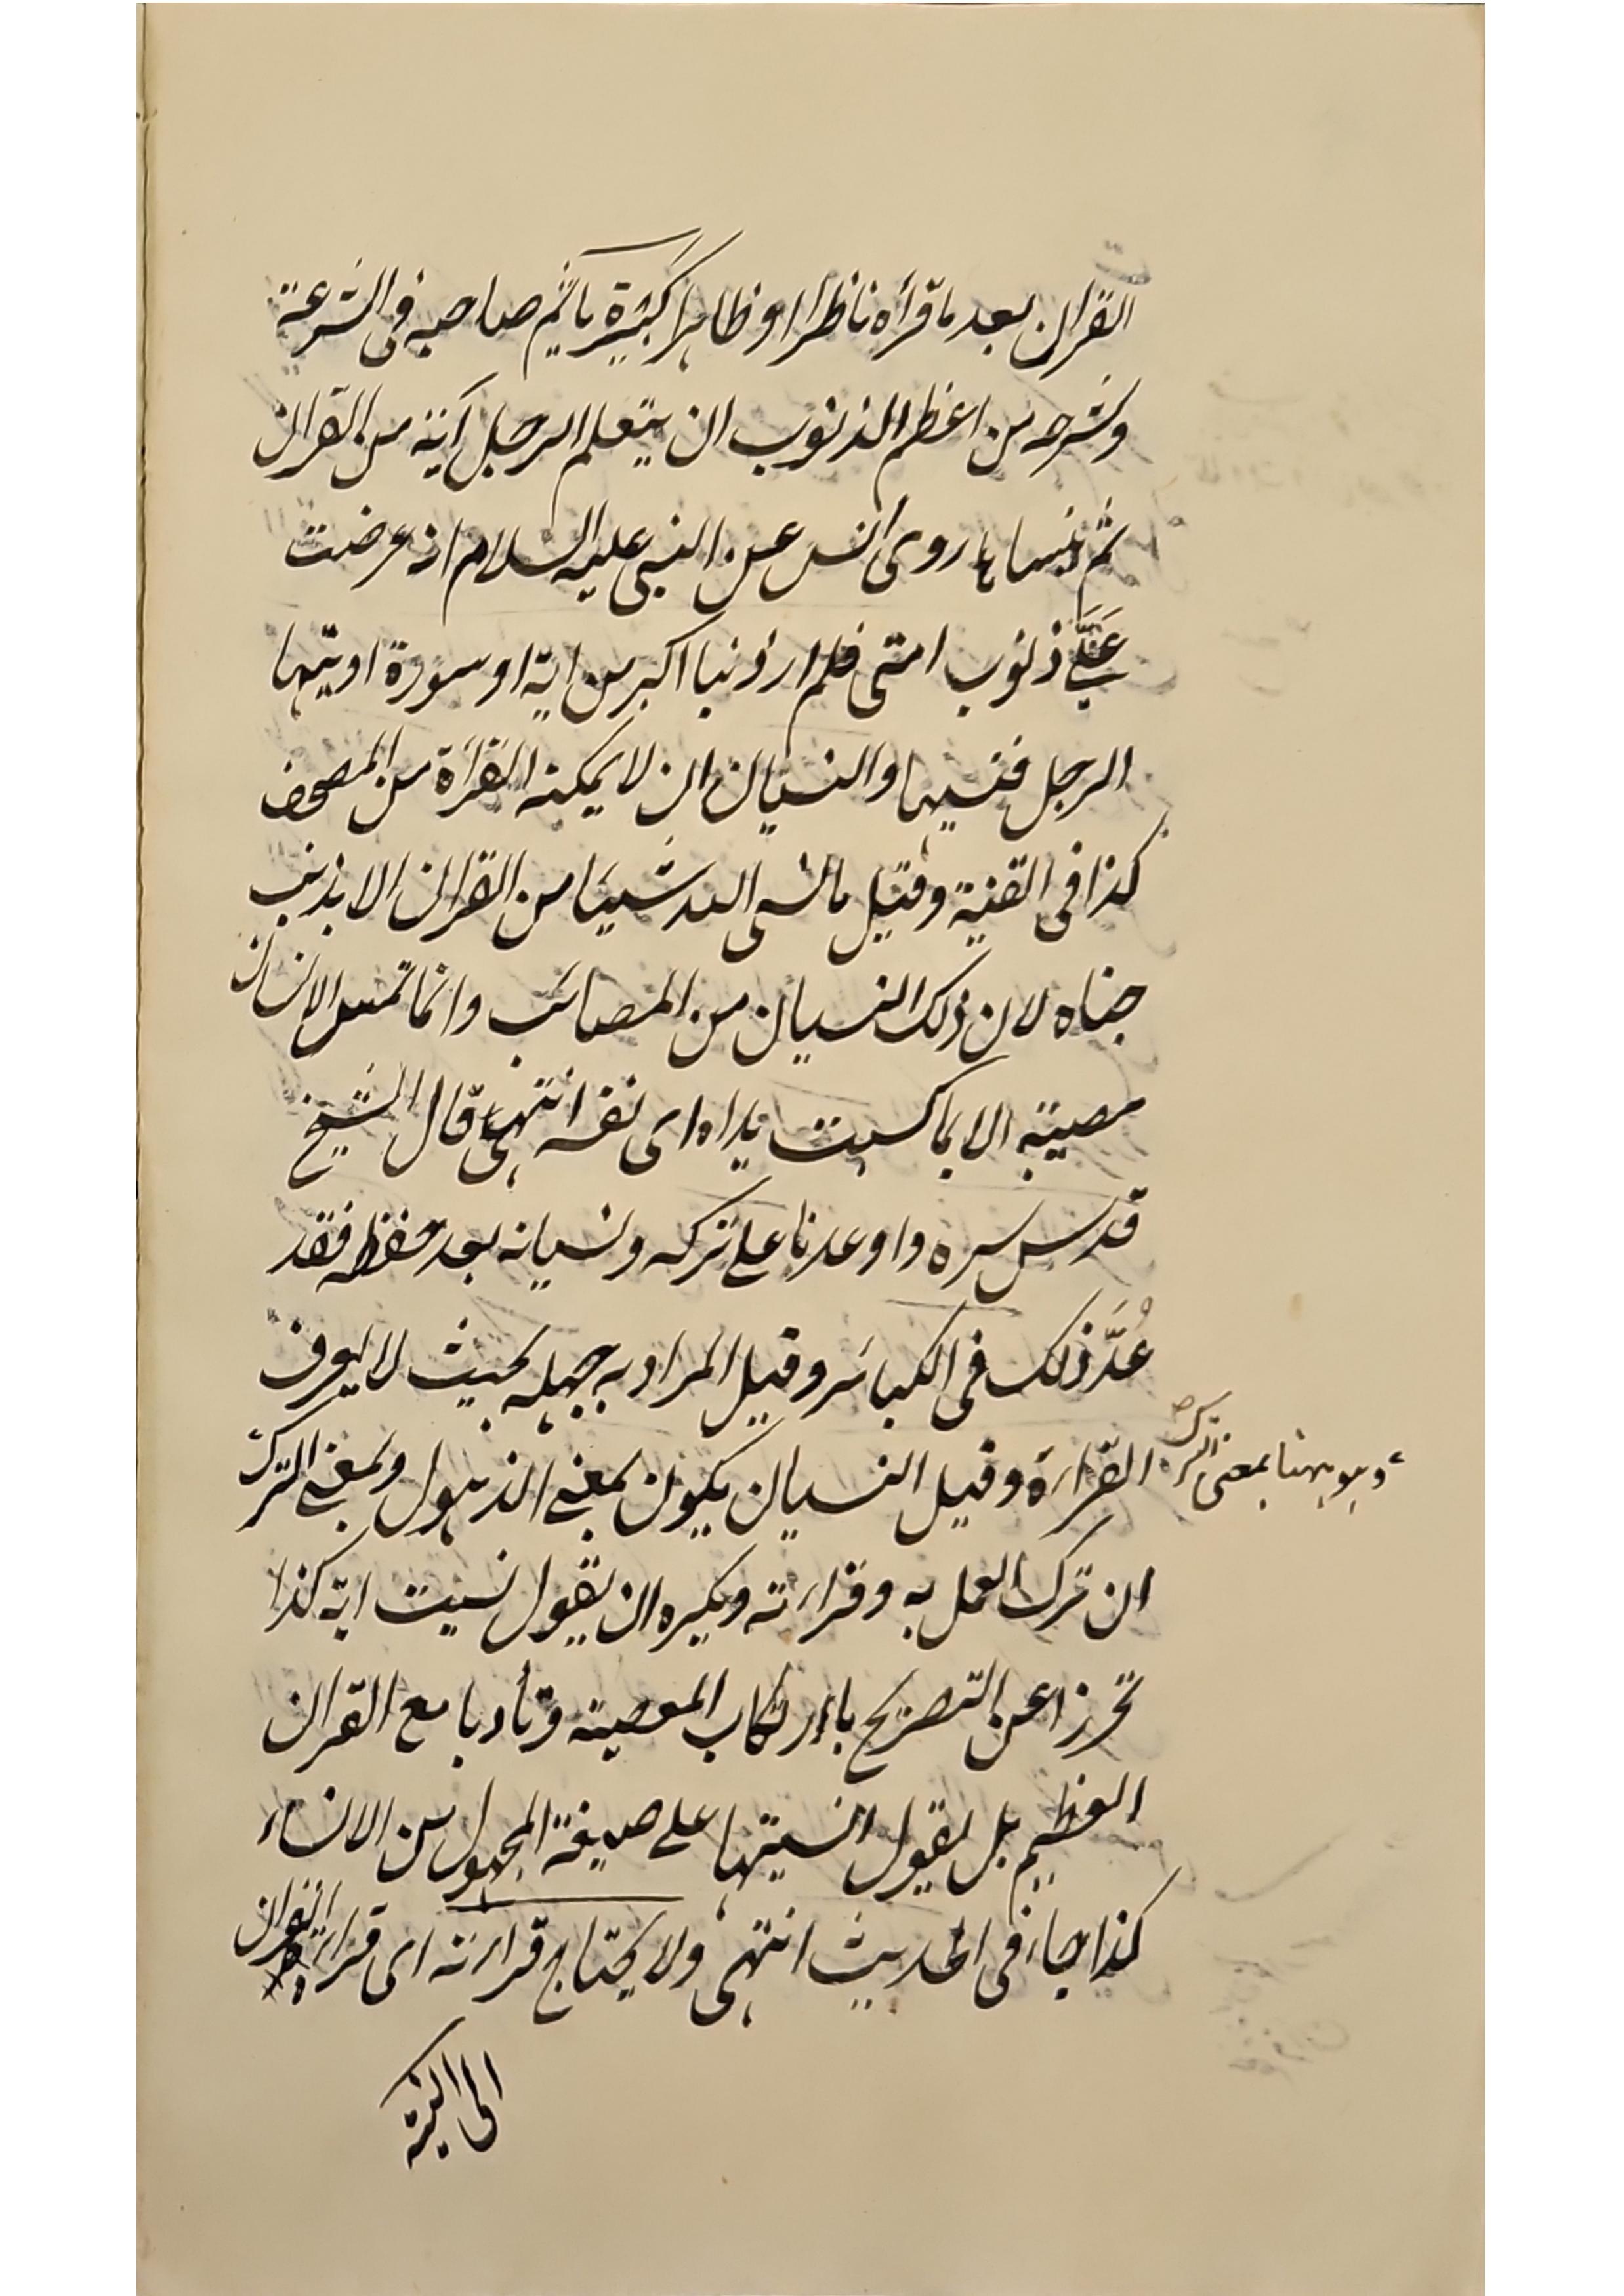 القران بعد ما قرأه ناظرا او ظاهرا كبيرة يأثم صاحبه فى الشرعة
وشرحه من اعظم الذنوب ان يتعلم الرجل آية من القران
ثم ينساها روى انس عن النبى عليه السلام انه عرضت
عَلَىَّ ذنوب امتى فلم ار ذنبا اكبر من اية او سورة اوتيها
الرجل فنسيها والنسيان ان لا يمكنه القرأة من المصحف
كذا فى القنية وقيل ما نسى العبد شيئا من القران الا بذنب
جناه لان ذلك النسيان من المصائب وانما تمس الانسان
مصيبة الا بما كسبت يداه اى نفسه انتهى قال الشيخ
قدس سره واوعدنا على تركه ونسيانه بعد حفظه فقد
عُدَّ ذلك فى الكبائر وقيل المراد به جهله بحيث لا يعرف
القراءة وقيل النسيان يكون بمعنى الذهول وبمعنى الترك
وهو ههنا بمعنى الترك صح
ان ترك العمل به وقراءته ويكره ان يقول نسيت اية كذا
تحرزا عن التصريح بارتكاب المعصية وتأدبا مع القران
العظيم بل يقول انسيتها على صيغة المجهول من الانساء
كذا جاء فى الحديث انتهى ولا يحتاج قراءته اى قراءة القران
الى النية